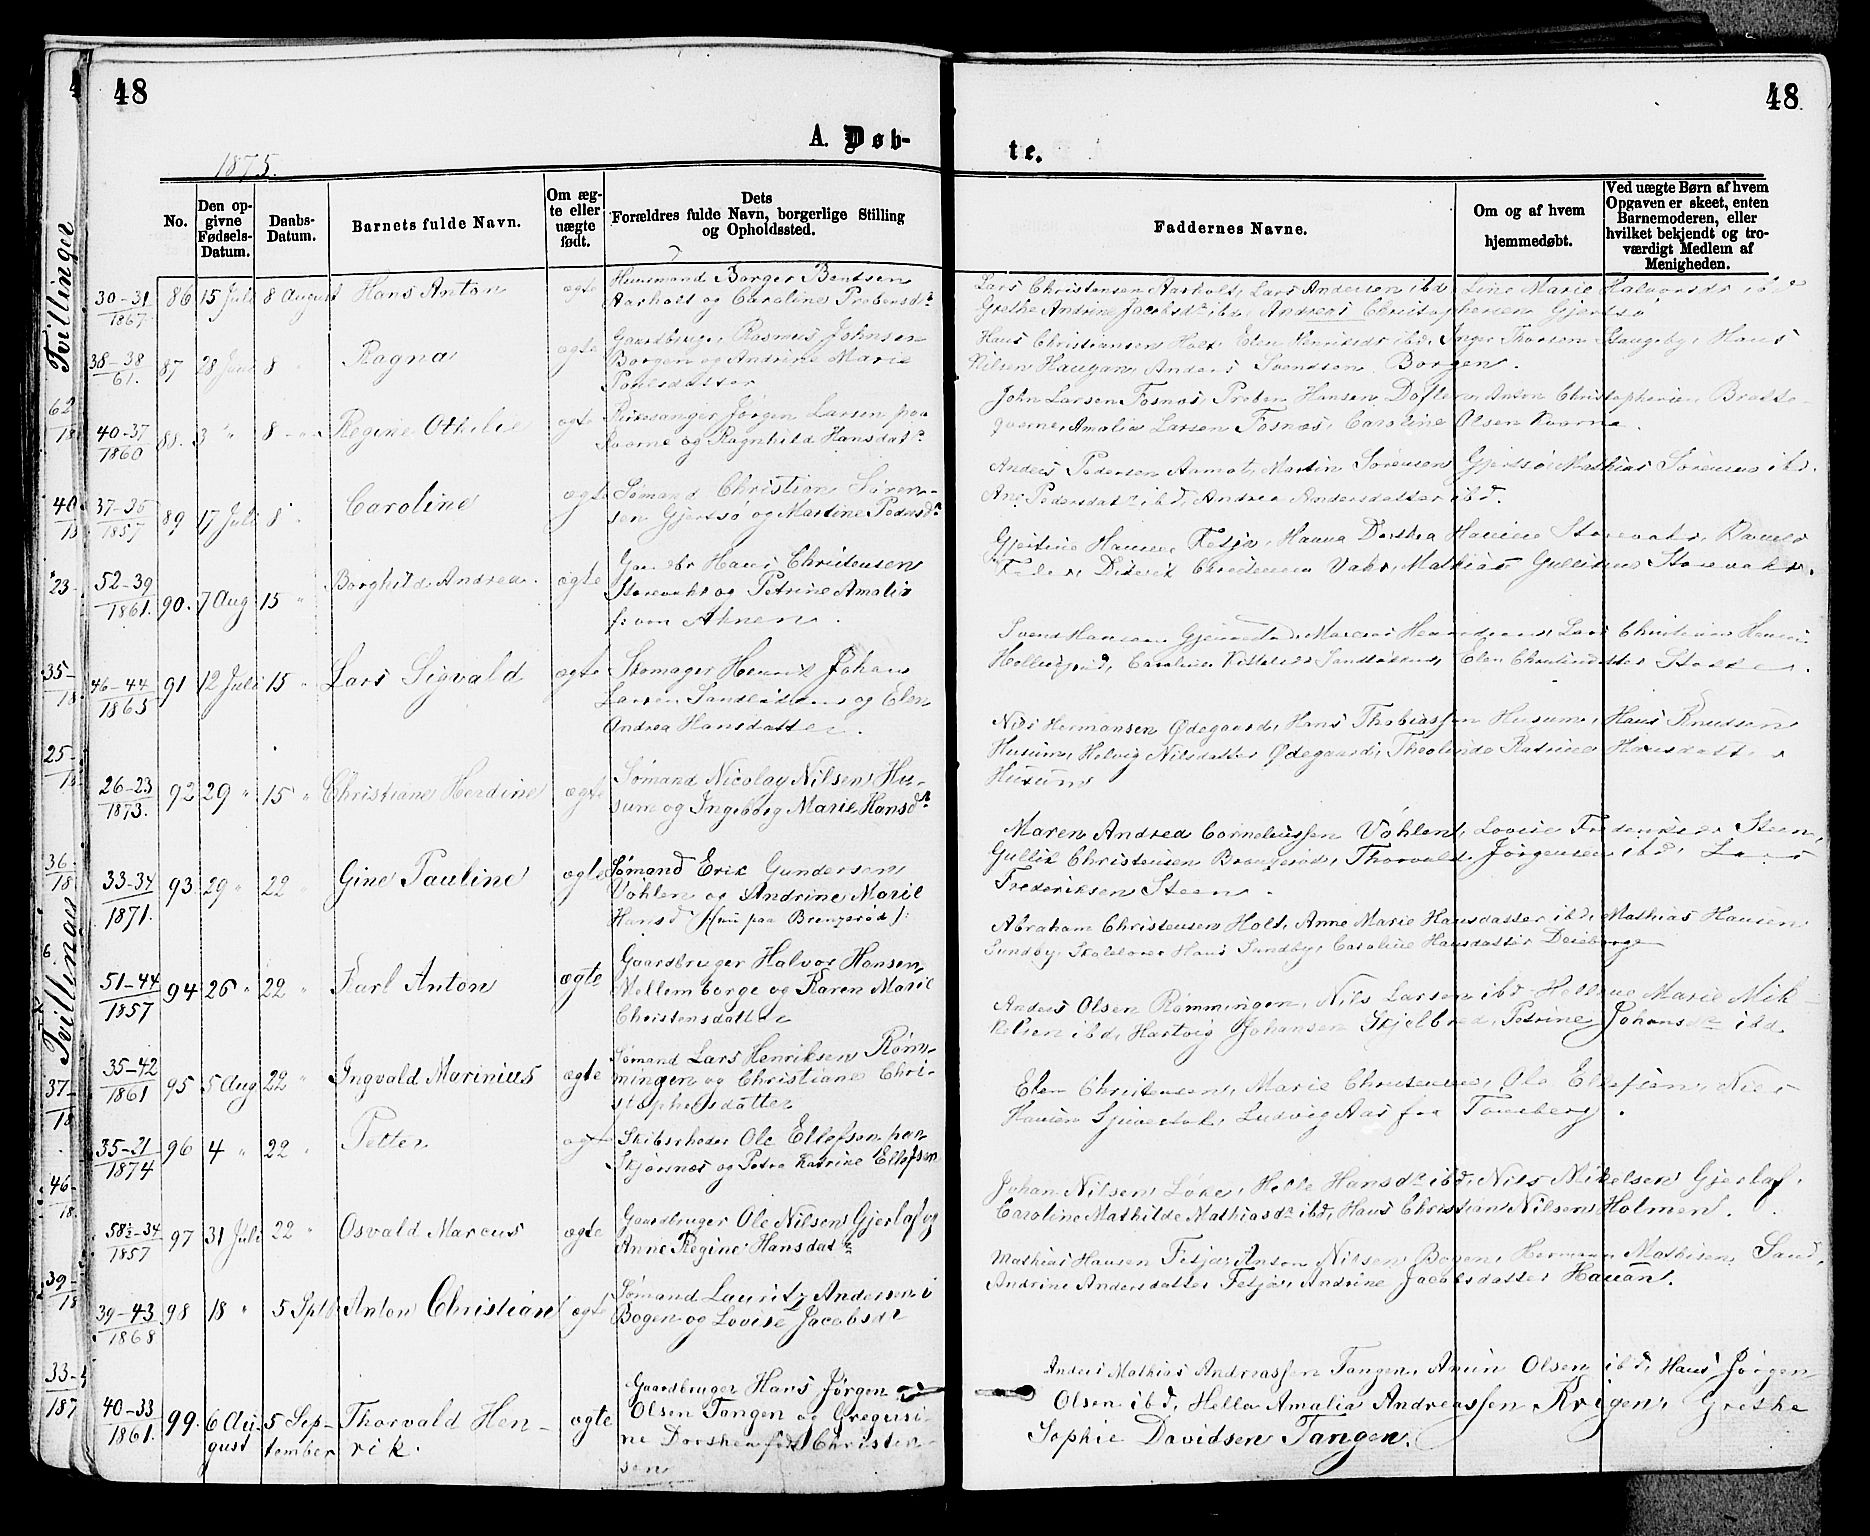 48
48
A. Døb-
te.
1875.
No.
Den opgivne Fødsels-Datum.
Daabs-Datum.
Barnets fulde Navn.
Om ægte eller uægte født.
Dets Forældres fulde Navn, borgerlige Stilling og Opholdssted.
Faddernes Navne.
Om og af hvem hjemmedøbt.
Ved uægte Børn af hvem Opgaven er skeet, enten Barnemoderen, eller hvilket bekjendt og troværdigt Medlem af Menigheden.
Tvillinger
30-31
1867.
86
15 Juli
8 August
Hans Anton
ægte
Huusmand Borger Bentsen
Aarholt og Caroline Prebensdr
Lars Christensen Aarholt, Lars Andersen ibd Line Marie Halvorsdr ibd
Grethe Andrine Jacobsdr ibd, Andreas Christophersen Gjertsø
38-38
61.
87
28 Juni
8 "
Ragna
ægte
Gaardbruger Rasmus Johnsen
Borgen og Andrine Marie
Poulsdatter
Hans Christiansen Holt Elen Henriksdr ibd, Inger Thoresen Haugeby, Hans
Nilsen Haugan, Anders Svendsen Borgen.
40-37
1860
88.
3 "
8 "
Regine Othilie
ægte
Jørgen Larsen paa
Kvorne og Ragnhild Hansdatr
John Larsen Fosnæs, Preben Hansen Anton Christophersen
Amalia Larsen Fosnæs, Caroline Olsen Kvorne.
37-35
1857
89
17 Juli
8 "
Caroline
ægte
Sømand Christian Sørensen
Gjertsø og Martine Pedersdr
Anders Pedersen Aamot, Martin Sørensen Gjertsø, Mathias Sørensen ibd.
Ane Pedersdatr ibd, Andrea Andersdatter ibd.
52-39
1861.
90.
7 Aug
15 "
Borghild Andrea
ægte
Gaardbr Hans Christensen
Storevahr og Petrine Amalia
f: von Ahnen.
Gjertine Hansen Fetja, Hanna Dorthea Hansen Storevahr,
Diderik Christensen Vahr, Mathias Gullisen Storevahr.
46-44
1865
91
12 Juli
15 "
Lars Sigvald
ægte
Skomager Henrik Johan
Larsen Sandløkken og Elen
Andrea Hansdatter.
Svend Hansen Gjennestad, Marcus Lars Christian Hansen
Caroline Sandløkken, Elen Christinedatter
26-23
1873.
92
29 "
15 "
Christiane Herdine
ægte
Sømand Nicolay Nilsen Husum
og Ingeborg Marie Hansdr
Nils Hermansen Ødegaard, Hans Thobiassen Husum, Hans Knudsen
Husum, Helvig Nilsdatter Ødegaard, Theolinde Katrine Hansdatter
Husum
33-34
1871.
93
29 "
22 "
Gine Pauline
ægte
Sømand Erik Gundersen
Vøhlen og Andrine Marie
Hansd (Hun paa Brengerød):
Maren Andrea Corneliussen Vøhlen, Lovise Frederikke Steen,
Gullik Christensen Brengerød, Thorvald Jørgensen ibd, Lars
Frederiksen Steen.
51-44
1857
94
26 "
22 "
Karl Anton
ægte
Gaardbruger Halvor Hansen
Mellemborge og Karen Marie
Christensdatter
Abraham Christensen Holt, Anne Marie Hansdatter ibd, Mathias Hansen
Sundby, Skolelærer Hans Sundby, Caroline Hansdatter
Tvillinger
35-42
1861
95
5 Aug
22 "
Ingvald Marinius
ægte
Sømand Lars Henriksen Rømmingen
og Christiane Christophersdatter
Anders Olsen Rømmingen, Nils Larsen ibd Helene Marie Mikkelsen
ibd, Hartvig Johansen Skjelbred, Petrine Johansdr ibd
35-21
1874
96
4 "
22 "
Petter
ægte
Skibsrheder Ole Ellefsen paa
Skjærsnæs og Petra Katrine Ellefsen
Elen Christensen, Marie Christensen, Ole Ellefsen, Nils
Hansen Ludvig Aas fra Tønsberg.
58½-34
1857
97
31 Juli
22 "
Osvald Marcus
ægte
Gaardbruger Ole Nilsen Gjerlaf og
Anne Regine Hansdatr
Johan Nilsen Løke, Helle Hansdr ibd, Nils Mikelsen Gjerlaf,
Caroline Mathilde Mathiasdr ibd, Hans Christian Nilsen Holmen.
39-43
1868
98
18 "
5 Sptb
Anton Christian
ægte
Sømand Lauritz Andersen i
Bogen og Lovise Jacobsdr
Mathias Hansen Fetja, Anton Nilsen Bogen, Hermann Mathisen Sand,
Andrine Andersdatter Fetja, Andrine Jacobsdatter Hauan.
40-33
1861.
99.
6 August
5 September
Thorvald Henrik.
ægte
Gaardbruger Hans Jørgen
Olsen Tangen og Gregusine
Dorthea født Christensen
Anders Mathias Andreassen Tangen, Amin Olsen ibd, Hans Jørgen
Olsen ibd, Hella Amalia Andreassen Krigen, Grethe
Sophie Davidsen Tangen.